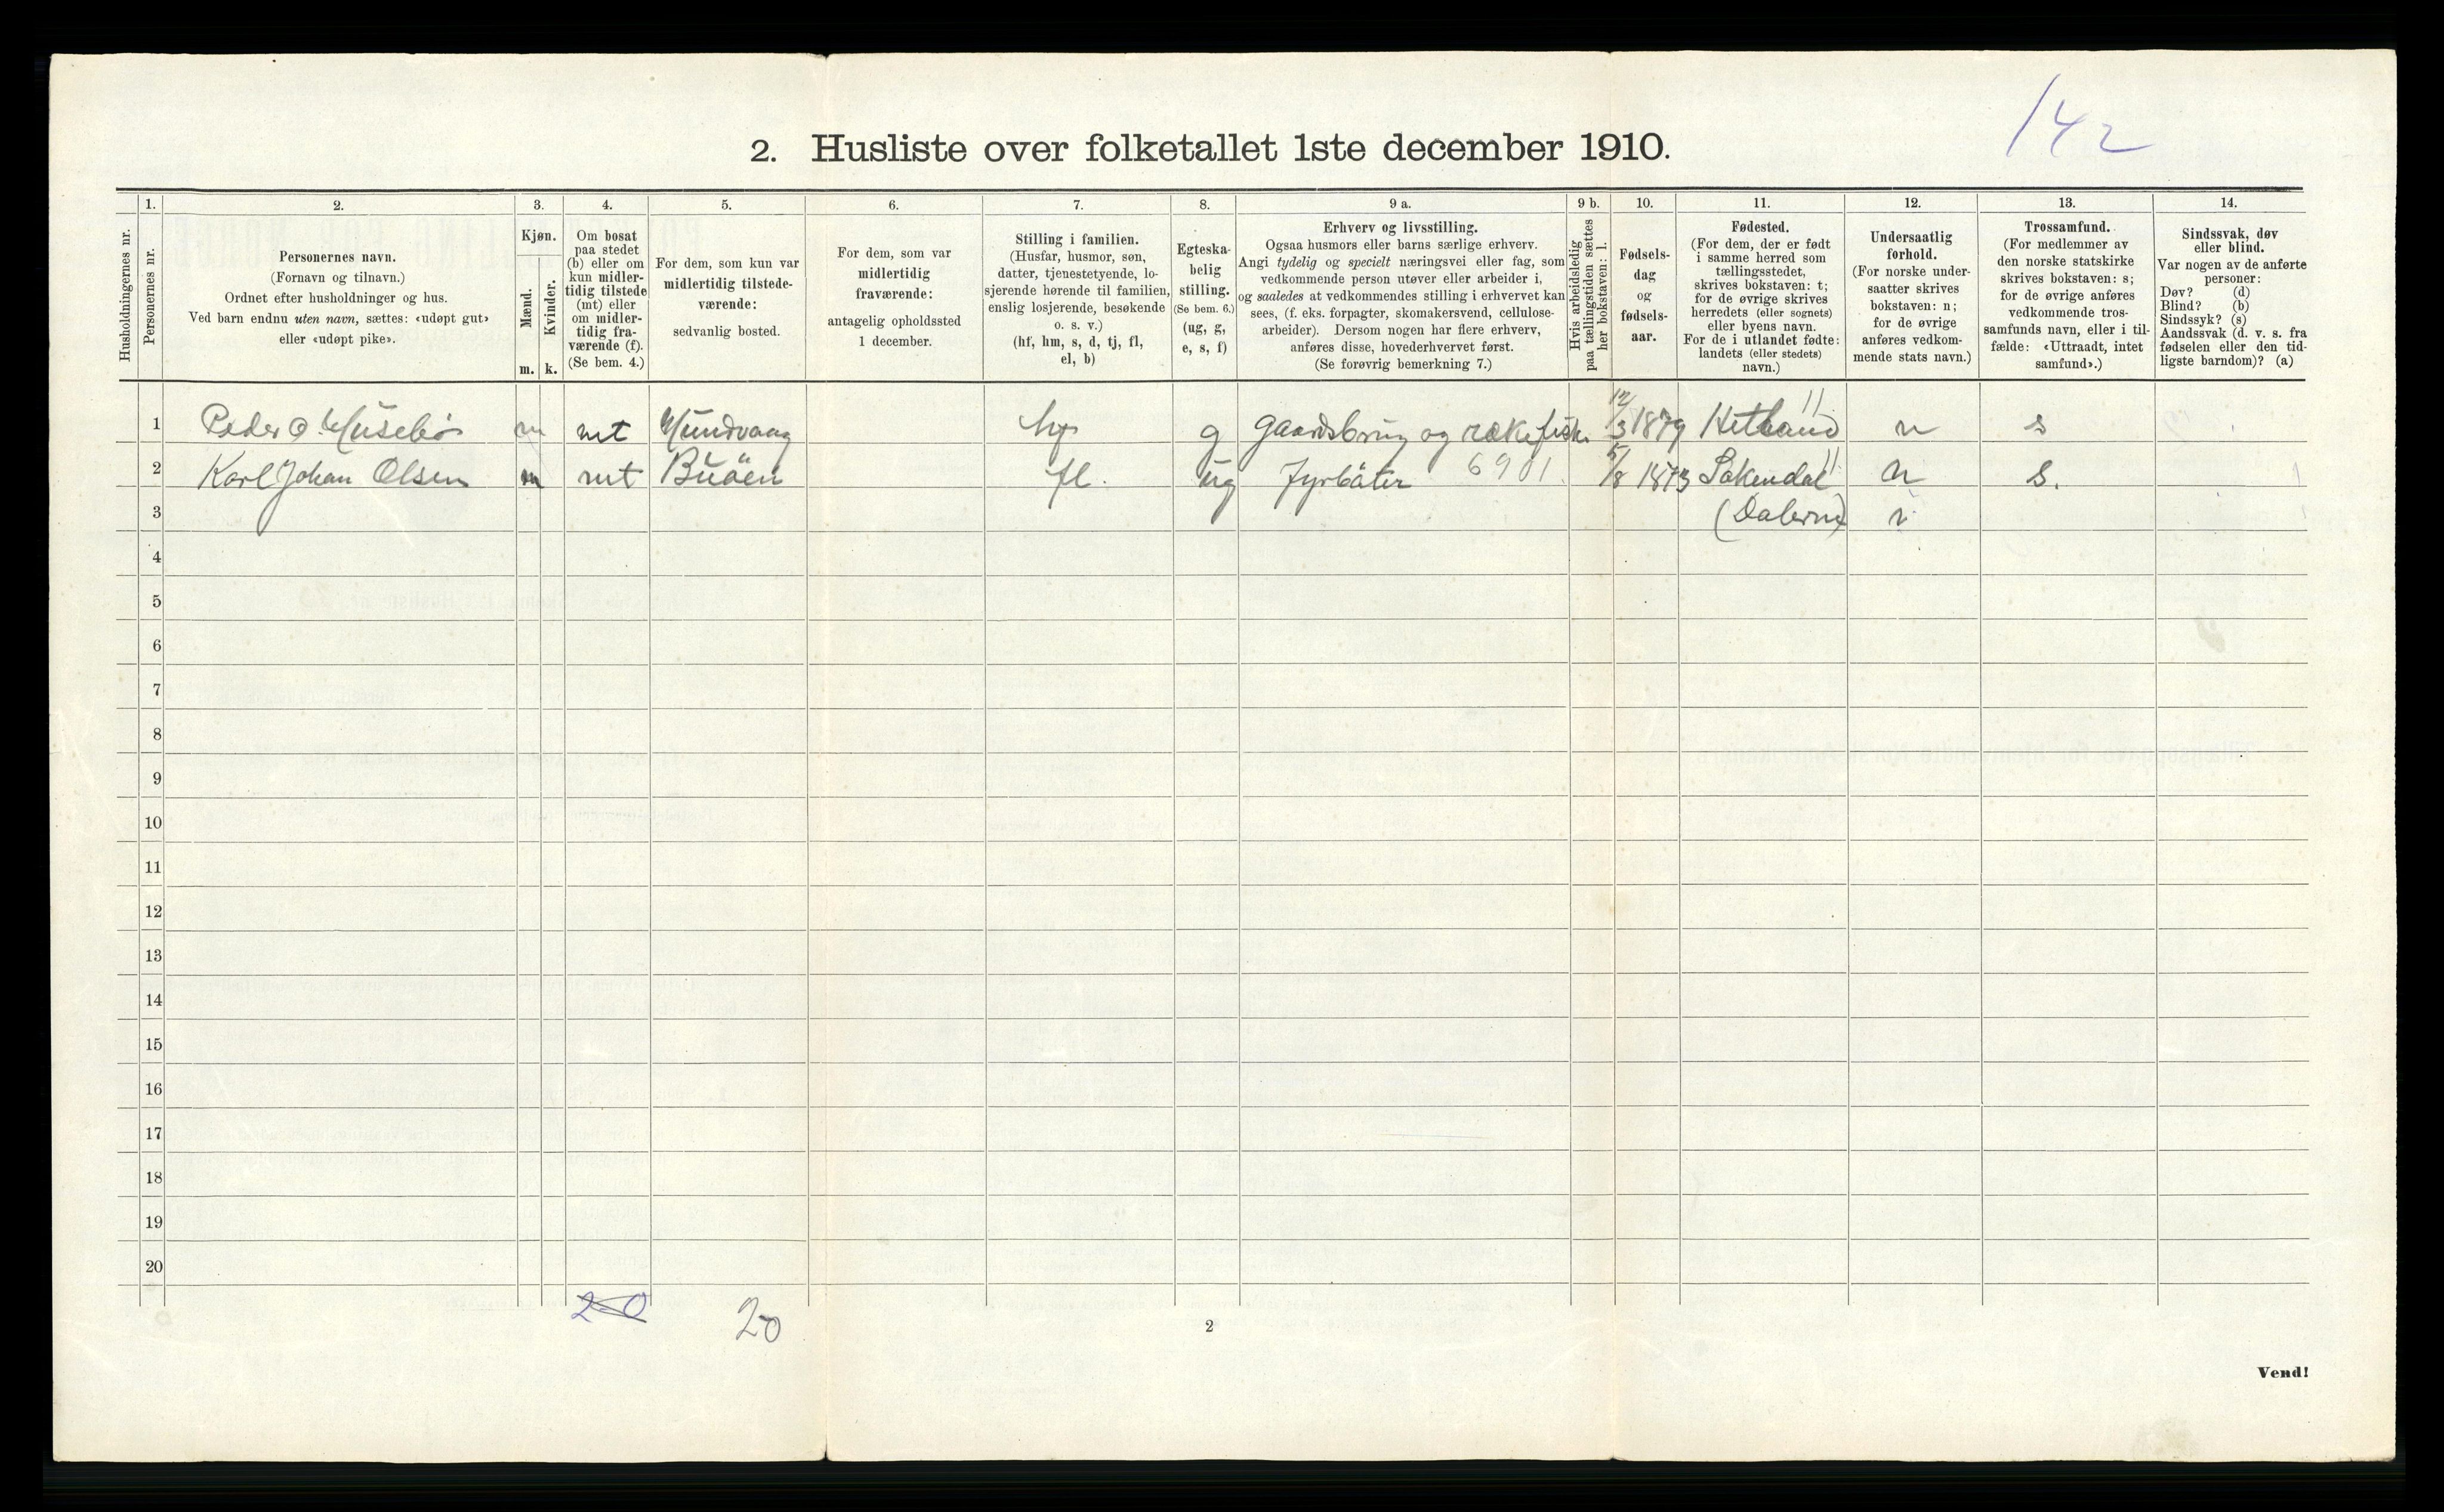 142
2. Husliste over folketallet 1ste december 1910.
Husholdningernes nr.
1.
Personernes nr.
2.
Personernes navn.
(Fornavn og tilnavn.)
Ordnet efter husholdninger og hus.
Ved barn endnu uten navn, sættes: «udøpt gut»
eller «udøpt pike».
3.
Kjøn.
Mænd.
Kvinder.
m. k.
4.
Om bosat
paa stedet
(b) eller om
kun midler-
tidig tilstede
(mt) eller
om midler-
tidig fra-
værende (f).
(Se bem. 4.)
5.
For dem, som kun var
midlertidig tilstede-
værende:
sedvanlig bosted.
6.
For dem, som var
midlertidig
fraværende:
antagelig opholdssted
1 december.
7.
Stilling i familien.
(Husfar, husmor, søn,
datter, tjenestetyende, lo-
sjerende hørende til familien,
enslig losjerende, besøkende
o. s. v.)
(hf, hm, s, d, tj, fl,
el, b)
8.
Egteska-
belig
stilling.
(Se bem. 6.)
(ug, g,
e, s, f)
9 a.
Erhverv og livsstilling.
Ogsaa husmors eller barns særlige erhverv.
Angi tydelig og specielt næringsvei eller fag, som
vedkommende person utøver eller arbeider i,
og saaledes at vedkommendes stilling i erhvervet kan
sees, (f. eks. forpagter, skomakersvend, cellulose-
arbeider). Dersom nogen har flere erhverv,
anføres disse, hovederhvervet først.
(Se forøvrig bemerkning 7.)
9 b.
Hvis arbeidsledig
paa tællingstiden sættes
her bokstaven: l.
10.
Fødsels-
dag
og
fødsels-
aar.
11.
Fødested.
(For dem, der er født
i samme herred som
tællingsstedet,
skrives bokstaven: t;
for de øvrige skrives
herredets (eller sognets)
eller byens navn.
For de i utlandet fødte:
landets (eller stedets)
navn.)
12.
Undersaatlig
forhold.
(For norske under-
saatter skrives
bokstaven: n;
for de øvrige
anføres vedkom-
mende stats navn.)
13.
Trossamfund.
(For medlemmer av
den norske statskirke
skrives bokstaven: s;
for de øvrige anføres
vedkommende tros-
samfunds navn, eller i til-
fælde: «Uttraadt, intet
samfund».)
14.
Sindssvak, døv
eller blind.
Var nogen av de anførte
personer:
Døv? (d)
Blind? (b)
Sindssyk? (s)
Aandssvak (d. v. s. fra
fødselen eller den tid-
ligste barndom)? (a)
1 Peder O. Husebø m mt Hundvaag g gaardsbrug og rækefisk. 12/3 1879 Hetland n s
2 Karl Johan Olsen m mt Buöen fl. ug Fyrbøter 6901. 5/8 1873 Sokendal n s.
3 (Dalerne) n
4
5
6
7
8
9
10
11
12
13
14
15
16
17
18
19
20
2-0 20
2
Vend!